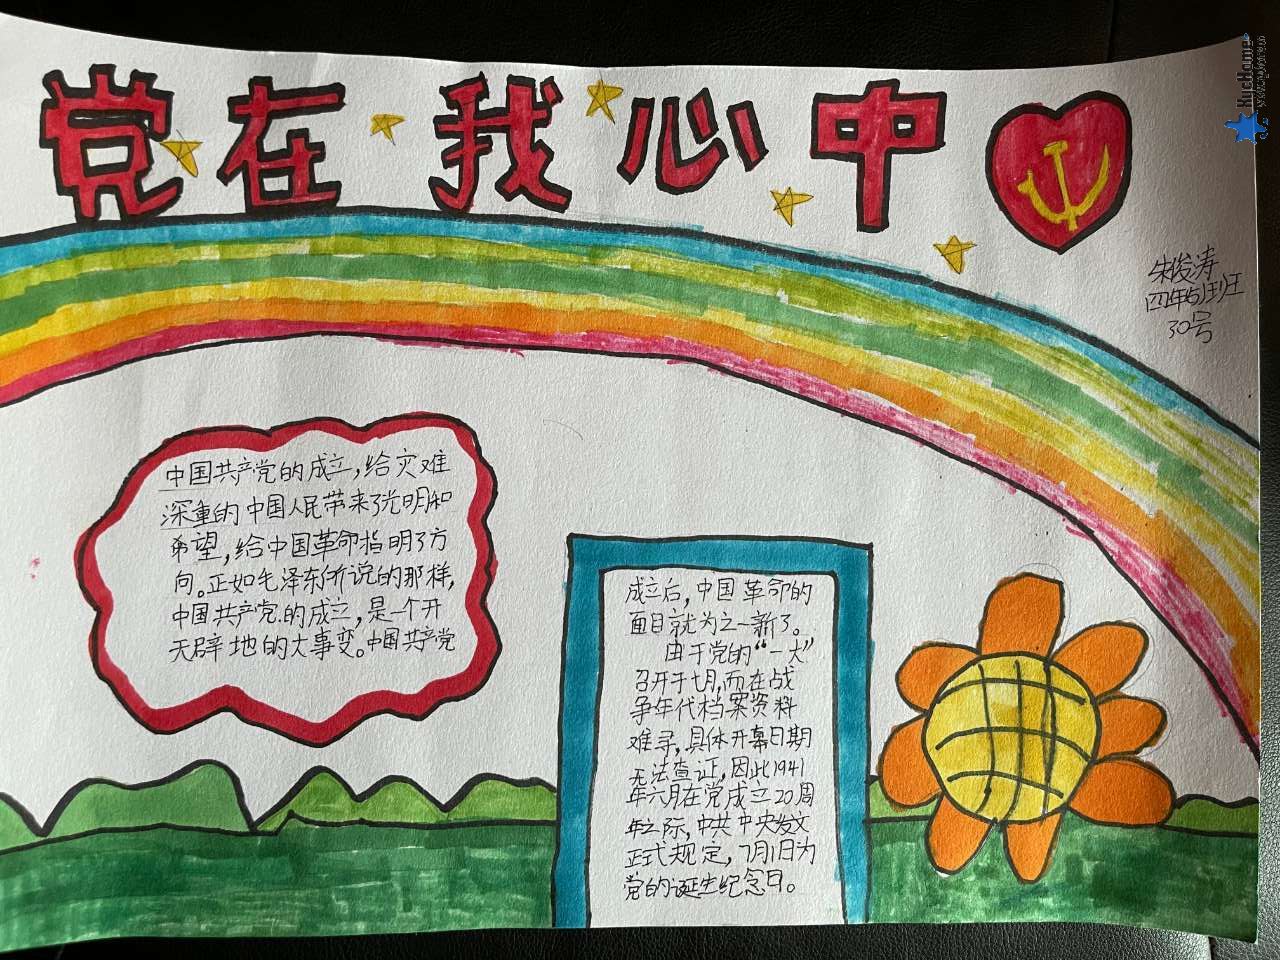 党在我心中
朱俊涛
四年6班
30号
中国共产党的成立,给灾难
深重的中国人民带来了光明和
希望,给中国革命指明了方
向。正如毛泽东所说的那样,
中国共产党的成立,是一个开
天辟地的大事变。中国共产党
成立后,中国革命的
面目就为之一新了。
由于党的“一大”
召开于七月,而在战
争年代档案资料
难寻,具体开幕日期
无法查证,因此1941
年六月在党成立20周
年之际,中共中央发文
正式规定,7月1日为
党的诞生纪念日。